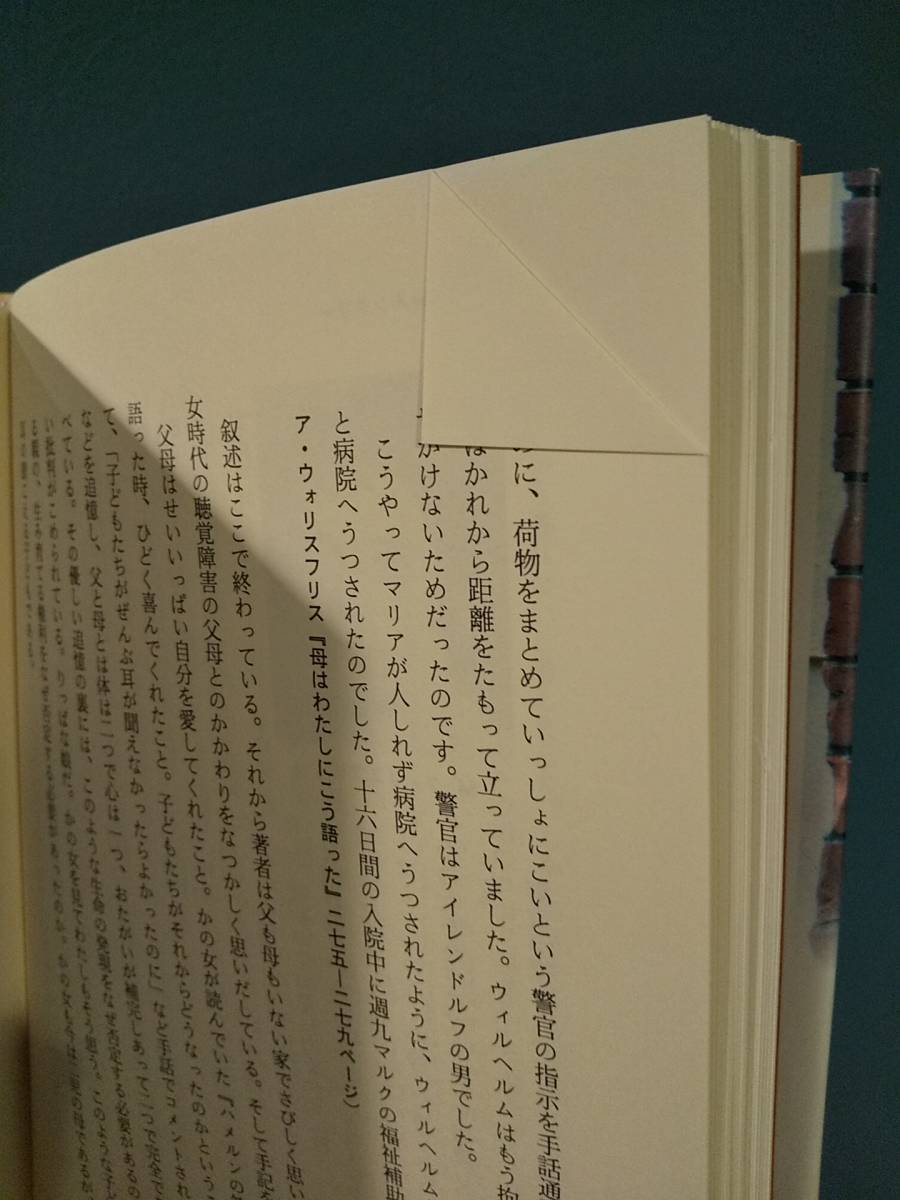 に、荷物をまとめていっしょにこいという警官の指示を手話通
ばかれから距離をたもって立っていました。ウィルヘルムはもう拘
がけないためだったのです。警官はアイレンドルフの男でした。
こうやってマリアが人しれず病院へうつされたように、ウィルヘルム
と病院へうつされたのでした。十六日間の入院中に週九マルクの福祉補助
ア・ウォリスフリス『母はわたしにこう語った』二七五―二七九ページ）
叙述はここで終わっている。それから著者は父も母もいない家でさびしく思い
女時代の聴覚障害の父母とのかかわりをなつかしく思いだしている。そして手記を
父母はせいいっぱい自分を愛してくれたこと。かの女が読んでいた『ハメルンの
語った時、ひどく喜んでくれたこと。子どもたちがそれからどうなったのかという
て、「子どもたちがぜんぶ耳が聞えなかったらよかったのに」など手話でコメントされ
などを追憶し、父と母とは体は二つで心は一つ、おたがいが補完しあって二つで完全で
べている。その優しい追憶の裏には、このような生命の発現をなぜ否定する必要があるの
い批判がこめられている。りっぱな親だ。かの女を見てわたしもそう思う。このような子ど
る親の、生み育てる権利をなぜ否定する必要があったのか。かの女も今は二児の母であるが